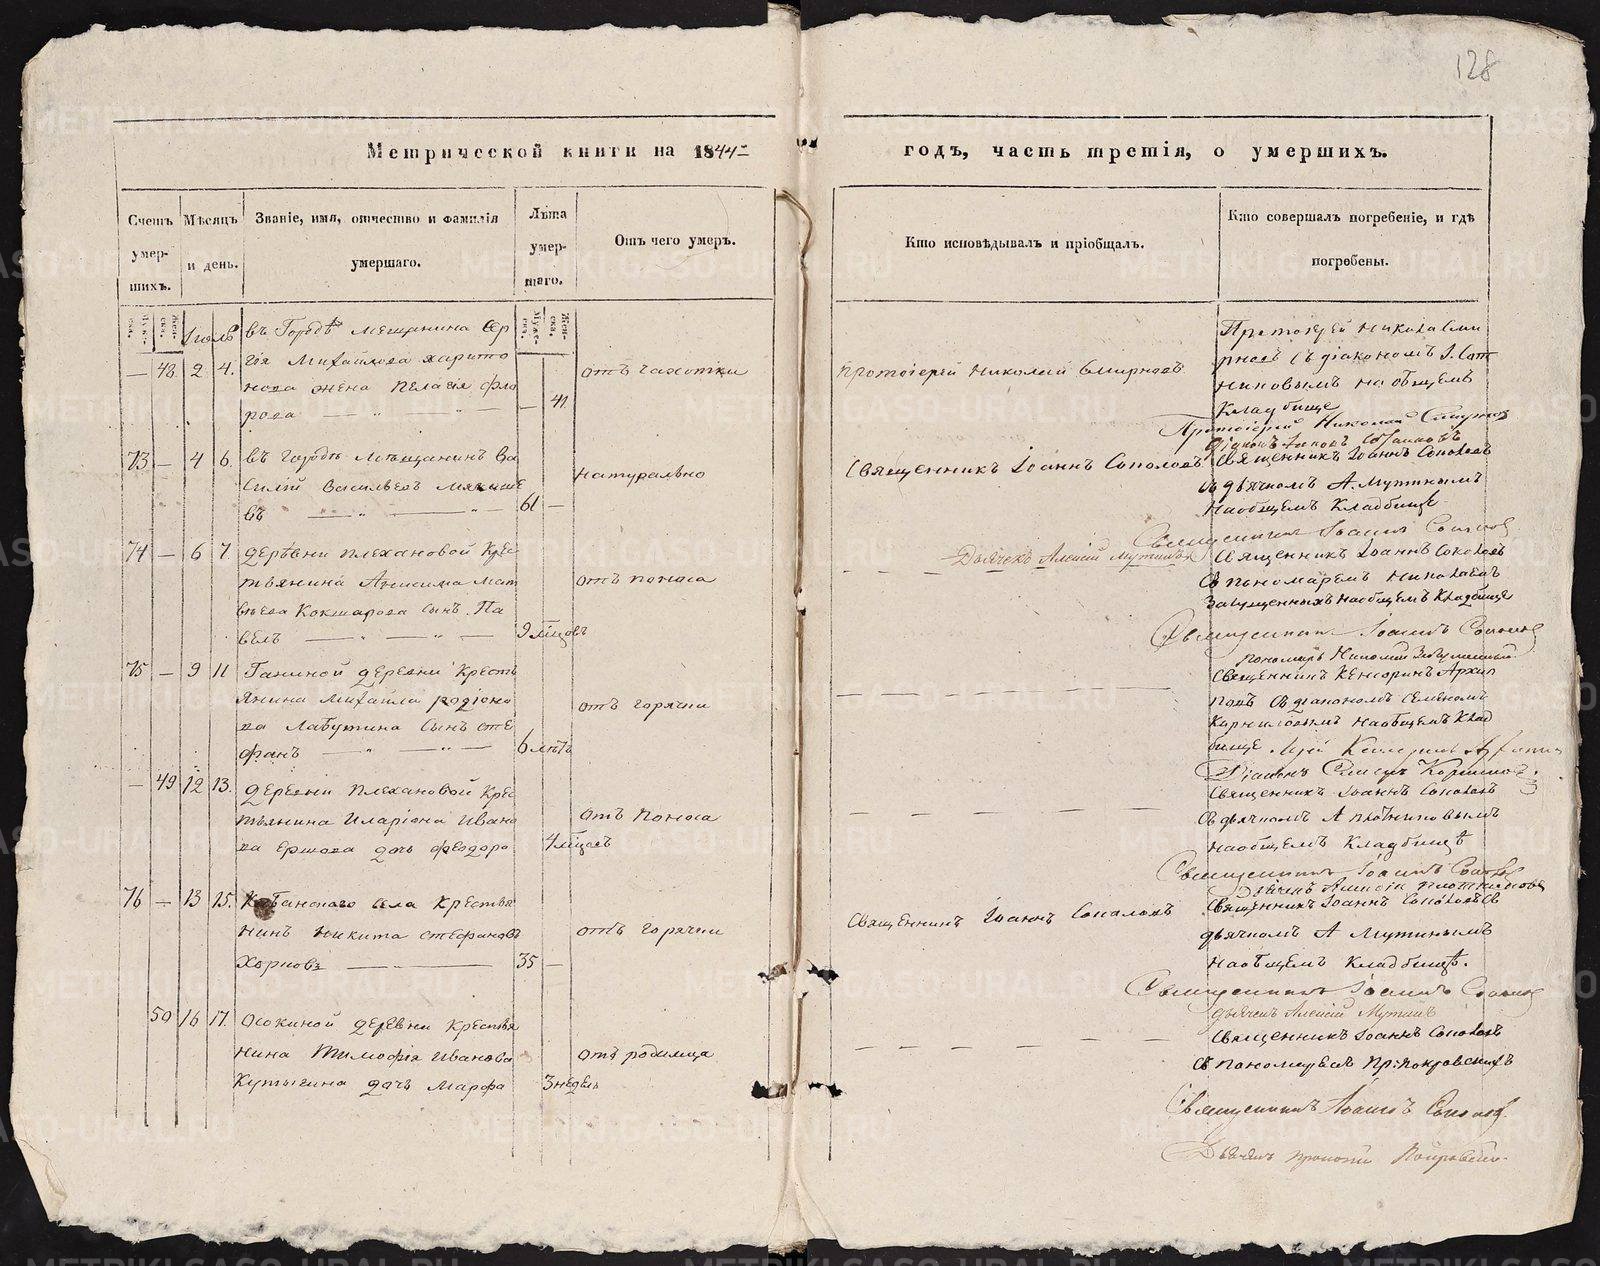 128
Метрической книги на 1844 годъ, часть третія, о умершихъ.
Счетъ умер- шихъ.
Мѣсяцъ и день.
Званіе, имя, отчество и фамилія умершаго.
Лѣта умер- шаго.
Отъ чего умеръ.
Кто исповѣдывалъ и пріобщалъ.
Кто совершалъ погребеніе, и гдѣ погребены.
Іюль
— 48. 2. 4.
въ Городѣ мещанина Сер
гія Михайлова Харито
нова жена Пелагія Фло
рова — 41
отъ чахотки
протоіерей Николай Смирновъ
Протоіерей Николай Сми
рновъ съ діакономъ І. Сат
никовымъ на общемъ
кладбище
Протоіерей Николай Смирновъ
73 — 4 6.
въ городѣ мѣщанинъ Ва
силій Васильевъ
въ — 61 —
натурально
Священникъ Іоаннъ Соколовъ
Священникъ Іоаннъ Соколовъ
съ дьячкомъ А. Мутинымъ
на общемъ кладбище
Священникъ Іоаннъ Соколов
Дьячекъ Алексій Мутинъ
74 — 6 7
деревни плехановой крес
тьянина Анисима Мат
вѣева Кокшарова сынъ Па
велъ — 9 мѣцовъ
отъ поноса
Священникъ Іоаннъ Соколовъ
съ пономаремъ Николаемъ
на общемъ кладбище
Священникъ Іоаннъ Соколов
пономарь Николай
75 — 9 11
Ганиной деревни кресть
янина Михаила родіоно
ва Лабутина сынъ сте
фанъ — 6 лѣтъ
отъ горячки
священникъ Кенсоринъ Архип
повъ съ діакономъ Семеномъ
Корниловымъ на общемъ клад
бище
Діаконъ Семенъ Корниловъ
— 49 12 13.
деревни плехановой крес
тьянина Иларіона Ивано
ва Ершова дочь Феодора 4 мѣцовъ
отъ поноса
Священникъ Іоаннъ Соколовъ
съ дьячкомъ А плотниковымъ
на общемъ кладбищѣ
Священникъ Іоаннъ Соколов
дьячекъ Алексій плотниковъ
76 — 13 15.
села крестья
нинъ Никита стефановъ
— 35 —
отъ горячки
Священникъ Іоаннъ Соколовъ
Священникъ Іоаннъ Соколовъ съ
дьячкомъ А Мутинымъ
на общемъ кладбищѣ.
Священникъ Іоаннъ Соколов
дьячекъ Алексій Мутинъ
50 16 17.
Осокиной деревни крестья
нина Тимофія Иванова
Кутыгина дочь Марфа 3 недѣль
отъ родимца
Священникъ Іоаннъ Соколовъ
съ пономаремъ Пр: покровскимъ
Священникъ Іоаннъ Соколов